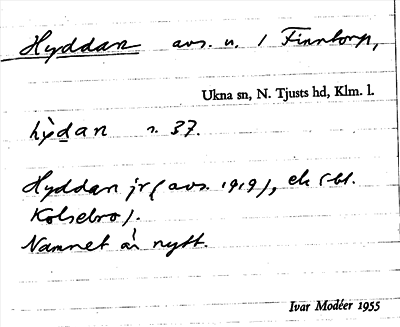 Hyddan avs. u. / Finntorp,
Ukna sn, N. Tjusts hd, Klm. l.
hỳdan r. 37.
Hyddan jr (avs. 1919), ek (bl.
Kolsebro).
Namnet är nytt.
Ivar Modéer 1955